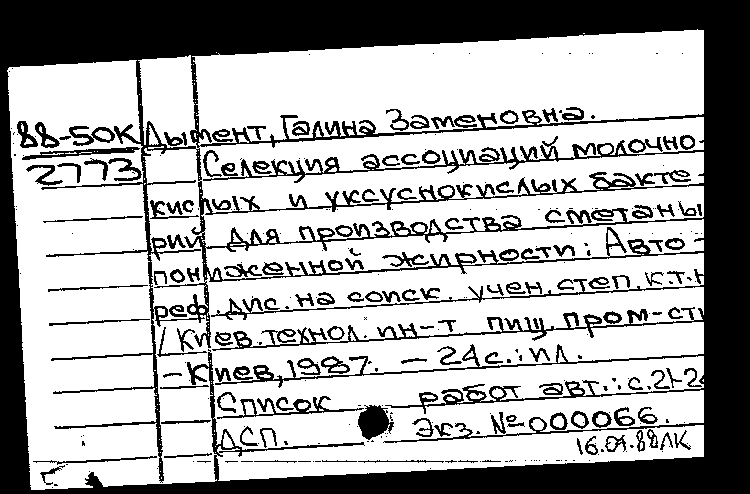 88-50К Дымент, Галина Заменовна.
2773 Селекция ассоциаций молочно-
кислых и уксуснокислых бакте-
рий для производства сметаны
пониженной жирности: Авто-
реф. дис. на соиск. учен. степ. к.т.н
/ Киев. технол. ин-т пищ. пром-сти
– Киев, 1987. – 24 с.: ил.
Список работ авт.: с. 21-24
ДСП. Экз. № 000066.
16.01.88 ЛК